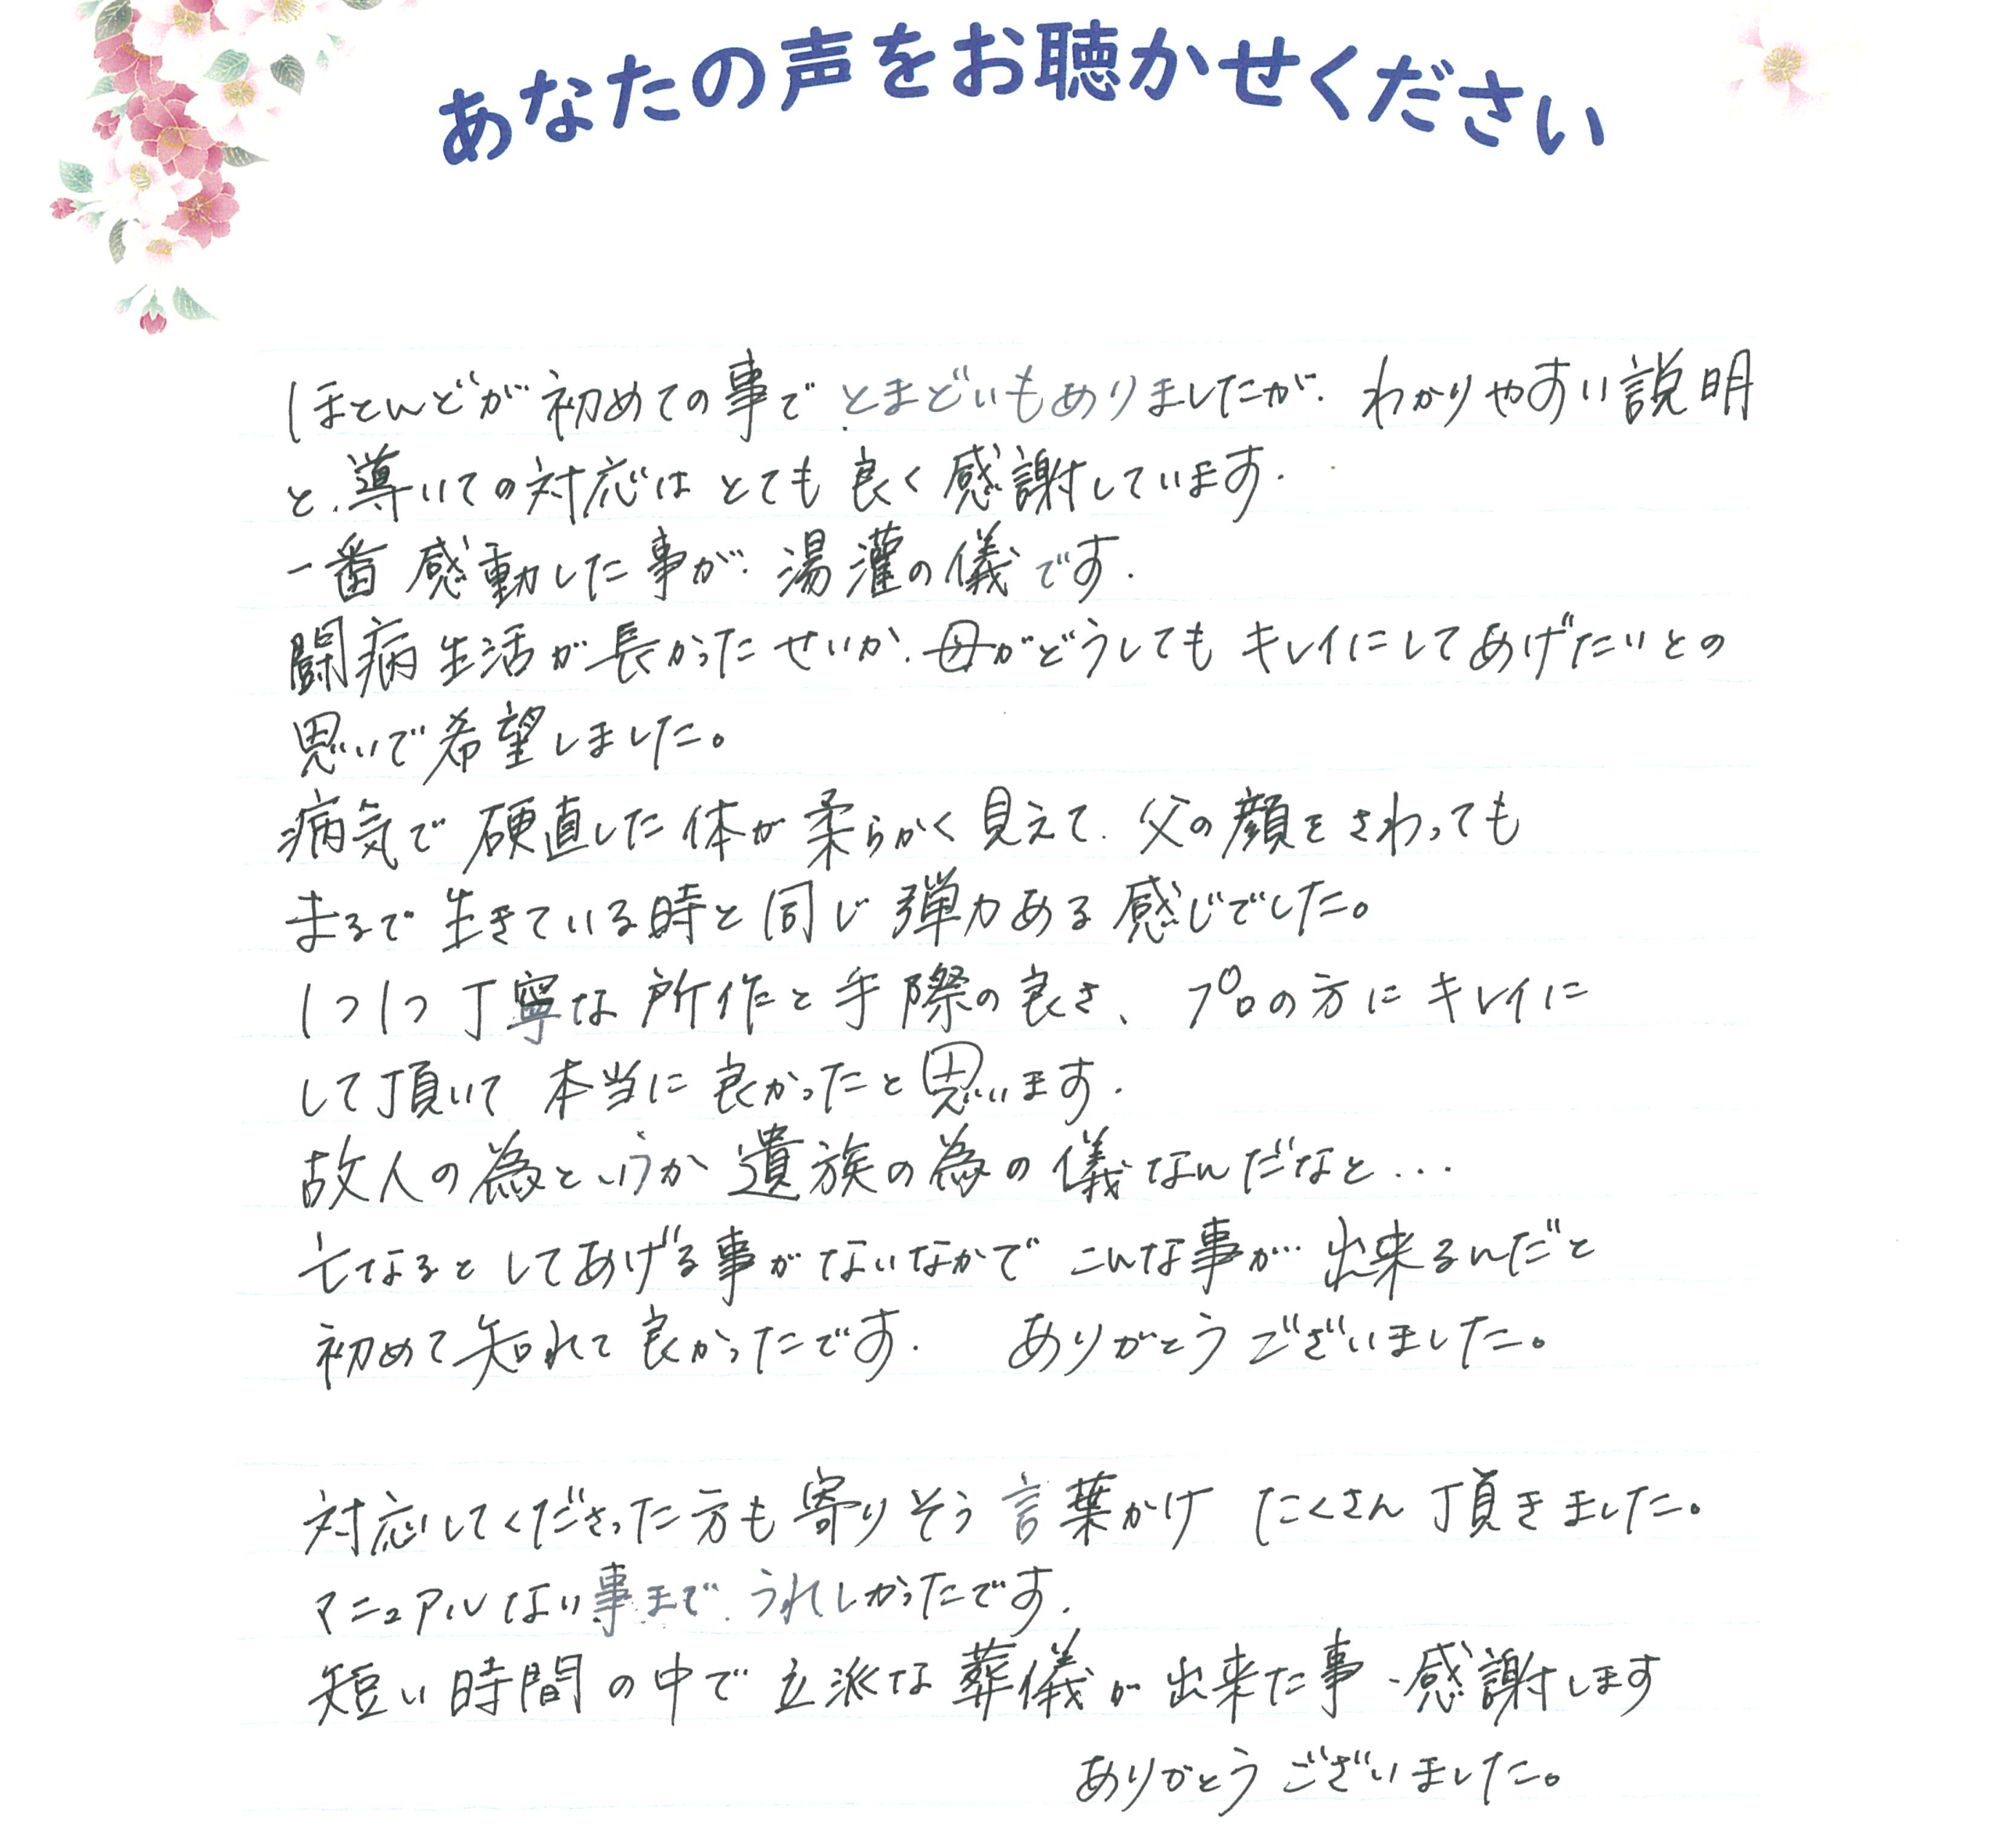 あなたの声をお聴かせください
ほとんどが初めての事でとまどいもありましたが、わかりやすい説明
と、導いての対応はとても良く感謝しています。
一番感動した事が、湯灌の儀です。
闘病生活が長かったせいか、母がどうしてもキレイにしてあげたいとの
思いで希望しました。
病気で硬直した体が柔らかく見えて、父の顔をさわっても
まるで生きている時と同じ弾力ある感じでした。
1つ1つ丁寧な所作と手際の良さ、プロの方にキレイに
して頂いて本当に良かったと思います。
故人の為というか遺族の為の儀なんだなと...
亡なるとしてあげる事がないなかでこんな事が出来るんだと
初めて知れて良かったです。 ありがとうございました。
対応してくださった方も寄りそう言葉かけたくさん頂きました。
マニュアルない事まで、うれしかったです。
短い時間の中で立派な葬儀が出来た事、感謝します
ありがとうございました。